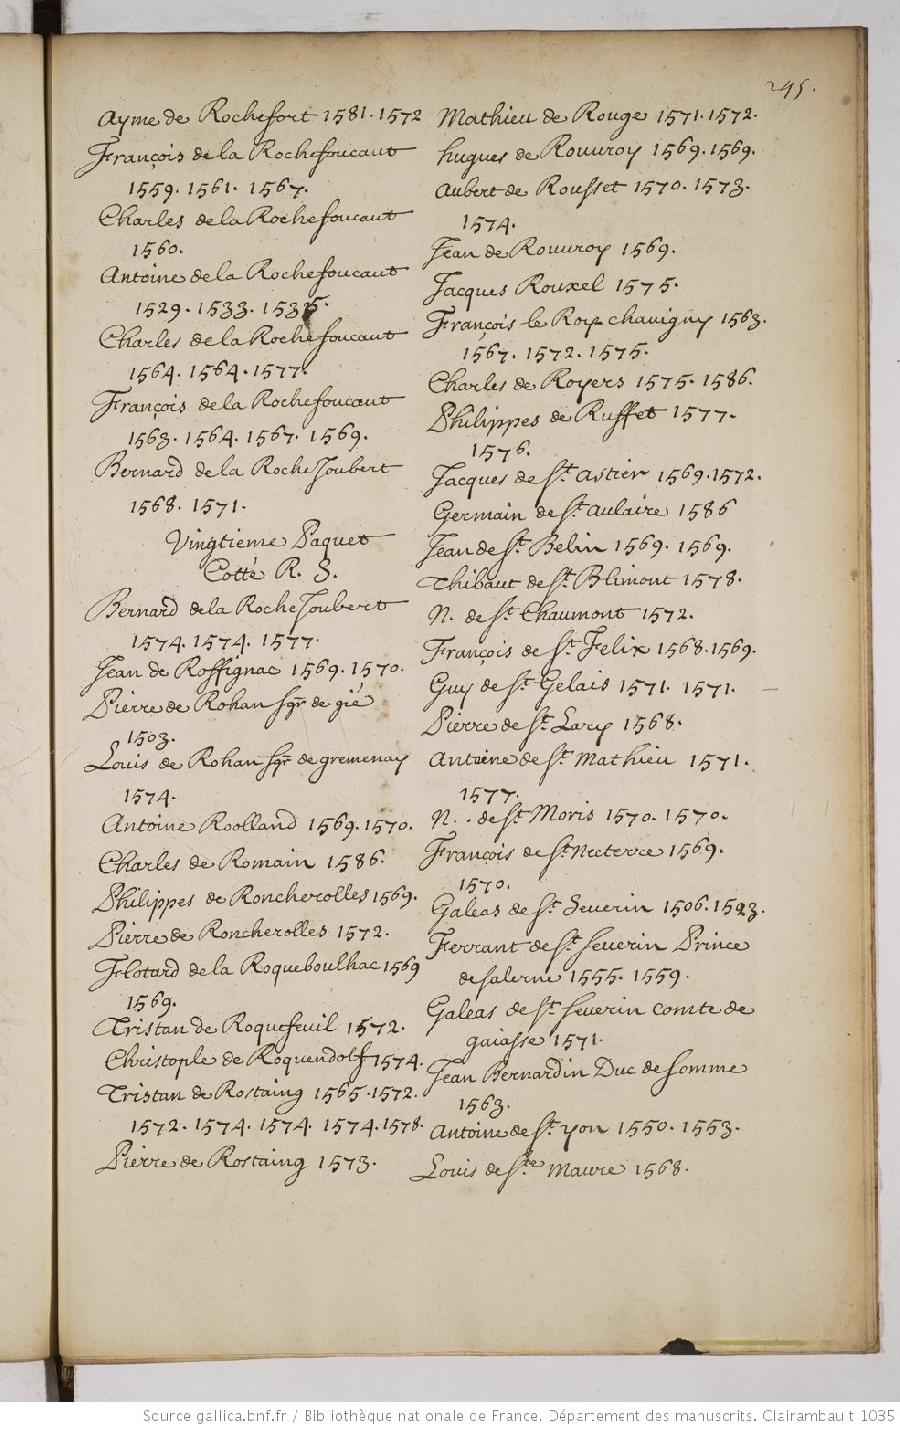 245.
Ayme de Rochefort 1581. 1572
François de la Rochefoucaut
1559. 1561. 1567.
Charles de la Rochefoucaut
1560.
Antoine de la Rochefoucaut
1529. 1533. 1535.
Charles de la Rochefoucaut
1564. 1564. 1577.
François de la Rochefoucaut
1563. 1564. 1567. 1569.
Bernard de la Roche Joubert
1568. 1571.
Vingtieme Paquet
Cotté R. S.
Bernard de la Roche Joubert
1574. 1574. 1577.
Jean de Roffignac 1569. 1570.
Pierre de Rohan sgr de gié
1503.
Louis de Rohan sgr de gremenay
1574.
Antoine Roolland 1569. 1570.
Charles de Romain 1586.
Philippes de Roncherolles 1569.
Pierre de Roncherolles 1572.
Flotard de la Roqueboulhac 1569
1569.
Tristan de Roquefeuil 1572.
Christople de Roquendolf 1574.
Tristan de Rostaing 1565. 1572.
1572. 1574. 1574. 1574. 1578.
Pierre de Rostaing 1573.
Mathieu de Rouge 1571. 1572.
hugues de Rouuroy 1569. 1569.
Aubert de Rousset 1570. 1573.
1574.
Jean de Rouuroy 1569.
Jacques Rouxel 1575.
François le Roy chauigny 1563.
1567. 1572. 1575.
Charles de Royers 1575. 1586.
Philippes de Ruffet 1577.
1576.
Jacques de St. Astier 1569. 1572.
Germain de St. Aulaire 1586
Jean de St. Belin 1569. 1569.
Thibaut de St. Blimont 1578.
N. de St. Chaumont 1572.
François de St. Felix 1568. 1569.
Guy de St. Gelais 1571. 1571.
Pierre de St. Lary 1568.
Antoine de St. Mathieu 1571.
1577.
N. . de St. Moris 1570. 1570.
François de St. Necterre 1569.
1570.
Galeas de St. Seuerin 1506. 1523.
Ferrant de St. Seuerin Prince
de salerne 1555. 1559.
Galeas de St. Seuerin comte de
gaiasse 1571.
Jean Bernardin Duc de Somme
1563.
Antoine de St. yon 1550. 1553.
Louis de Ste. Maure 1568.
Source gallica.bnf.fr / Bibliothèque nationale de France. Département des manuscrits. Clairambault 1035